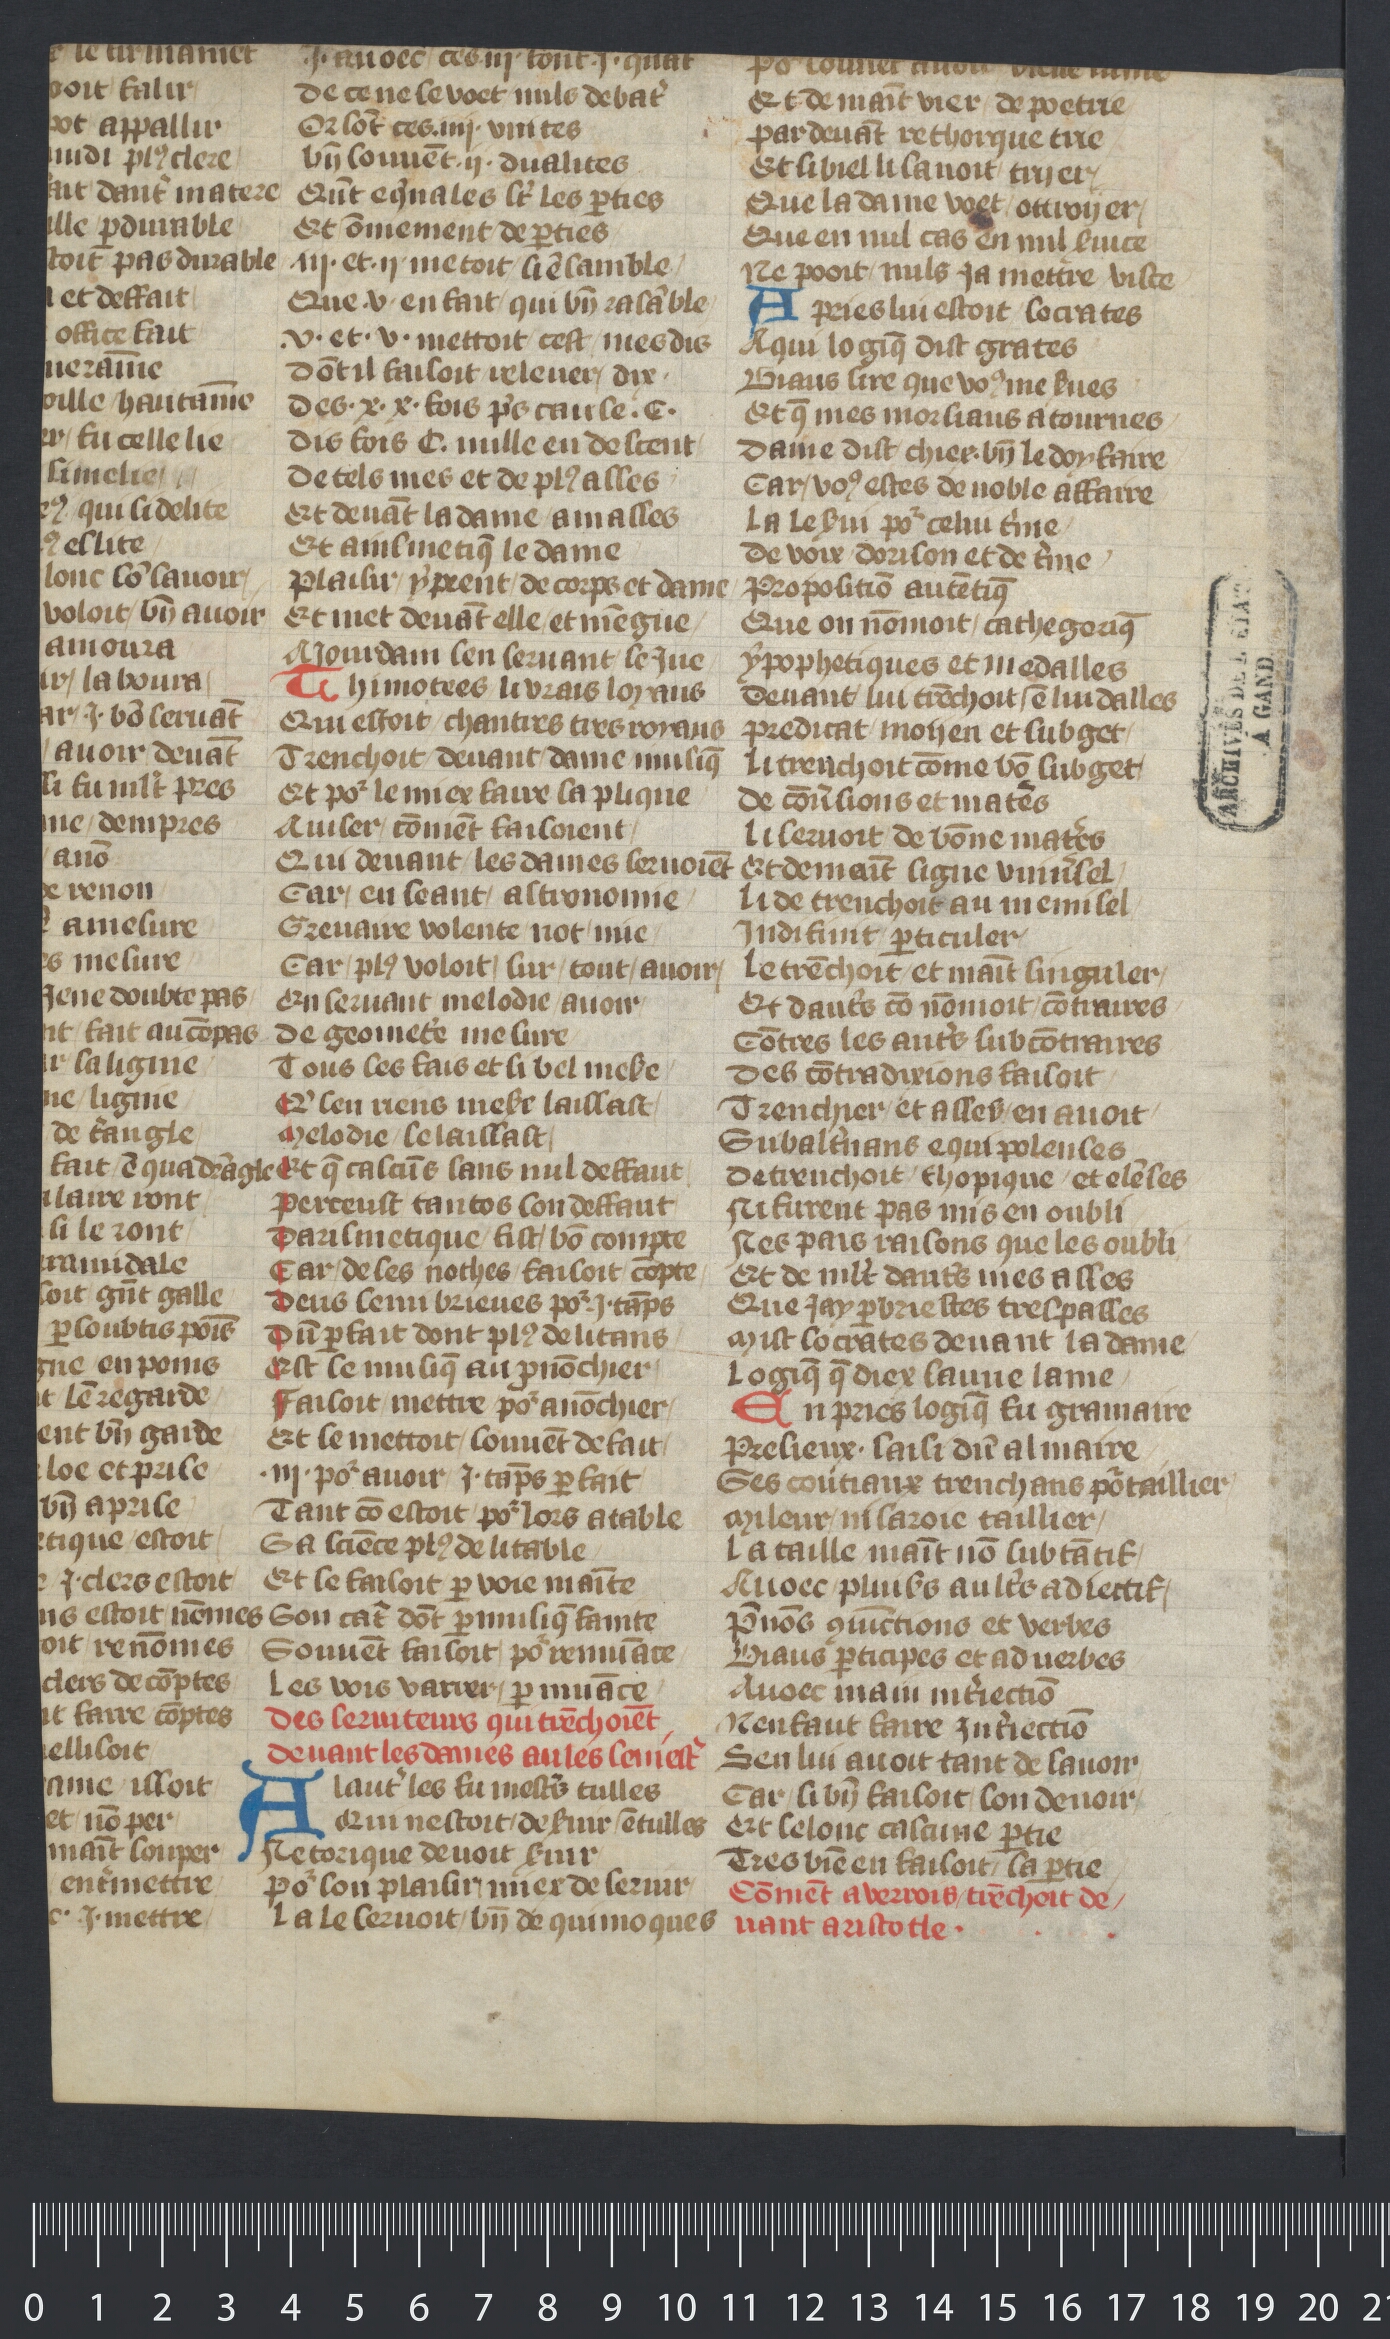 le firmamet
poit falir
pot appallir
mdi plꝰ clere
ait dautˀ matere
lle ꝑdurable
toit pas durable
et deffait
office fait
uerāme
oille hautāme
er fu celle lie
simelie
qui si delite
eslite
lonc sō sauoir
voloit bn̄ auoir
amoura
ir laboura
ar .j. bō seruāt
auoir deuāt
li fu ml̄t pres
me dempres
auō
de renon
amesure
es mesure
Jene doubte pas
nt fait au cōpas
ir la ligme
ne ligme
de tˀangle
fait ē quadrˀagle
ilaire vont
si le vont
ramidale
soit gn̄t galle
ꝑ soubtis poīs
gne en poins
t lē regarde
ent bn̄ garde
loe et prise
bn̄ aprise
etique estoit
e .j. clers estoit
ns estoit nōmes
oit renōmes
clers de cōptes
it faire cōptes
ellisoit
ame issoit
et nō per
maīt souper
entˀmettre
c. .j. mettre
.J. auoec ces .iij. font .j. quat
De ce ne se voet nuls debatˀ
Or sōt ces .iiij. vnites
bn̄ souuēt .ij. dualites
Qn̄t eq̄nales st̄ les ꝑties
Et ōniement de ꝑties
.iij. et .ij. metoit si ēsamble
Que .v. en fait qui bn̄ rasāble
.v. et .v. mettoit cest mes dis
Dōt il faisoit releuer dix
Des .x. x. fois pˀs cause .C.
Dis fois C. mille en descent
De tels mes et de plꝰ asses
Et deuāt la dame amasses
Et arismetiq̄ le dame
Plaisir y prent de corps et dame
Et met deuāt elle et mēgue
A Jourdain sen seruant le Jue
Thimotees li vrais loyaus
Qui estoit chantres tres royaus
Trenchoit deuant dame musiq̄
Et poˀ le miex faire sa plique
Auiser cōmēt faisoient
Qui deuant les dames seruoiēt
Car en seant astronomie
Greuaire volente not mie
Car plꝰ voloit sur tout auoir
En seruant melodie auoir
De geometˀe mesure
Tous ses fais et si bel mese
Qˀ sen riens mese laissast
Melodie se laissast
Et q̄ cascūs sans nul deffaut
Perceust tantos son deffaut
Darismetique fist bō compte
Car de ses nothes faisoit cōpte
Deus semi brieues poˀ .j. tāps
Dū ꝑfait dont plꝰ delitans
Est le musiq̄ au pnōchier
Faisoit mettre poˀ anōchier
Et le mettoit souuēt de fait
.iij. poˀ auoir .j. tāps ꝑfait
Tant cō estoit poˀ lors a table
Sa sciēce plꝰ delitable
Et le faisoit ꝑ voie maīte
Son catˀ dōt ꝑ musiq̄ fainte
Souuēt faisoit poˀ remuāce
Les vois varier ꝑ muāce
Des seruiteurs qui trēchoiēt
deuant les dames au les seniestˀ
A lautˀ les fu mestˀs tulles
Qui nestoit de suir ētulles
Retorique deuoit suir
Poˀ son plaisir miex deseruir
La le seruoit bn̄ de quimoques
Et de maīt vier de poetrie
Par deuāt rethorque trie
Et si biel li sauoit tryer
Que la dame voet ottroyer
Que en nul cas en nul suice
Ne pooit nuls ja mettre visce
A pries lui estoit socrates
A qui logiq̄ dist grates
Biaus sire que voꝰ me sues
Et q̄ mes morsiaus atournes
Dame dist chier bn̄ le doy faire
Car voꝰ estes de noble affaire
La le sui poˀ celui tˀme
De voix dorison et de tˀme
Propositiō autētiq̄
Que on nōmoit cathegoriq̄
ypophetiques et medalles
Deuant lui trēchoit sē lui dalles
Predicat moyen et subget
Li trenchoit cōme bō subget
De cōn̄sions et matˀes
Li seruoit de bōne matˀes
Et de maīt signe vniuˀsel
Li detrenchoit au menisel
Indifinit ꝑticuler
Le trēchoit et maīt singuler
Et dautˀs cō nōmoit cōtraires
Cōtres les autˀs subcōtraires
Des cōtradixions faisoit
Trenchier et asses en auoit
Subaltˀnans equipolenses
Detrenchoit thopique et elēses
Ni furent pas mis en oubli
Nes pais raisons que les oubli
Et de ml̄t dautˀs mes asses
Que Jay ꝑ briestes trespasses
Mist socrates deuant la dame
Logiq̄ q̄ diex sauue lame
En pries logiq̄ fu gramaire
Presieux saisi dū almaire
Ses coutiaux trenchans poˀ taillier
Mileur ni saroie taillier
La taille maīt nō subtātif
Auoec pluisˀs aultˀs adiectif
Pˀnōs 9iunctions et verbes
Biaus ꝑticipes et aduerbes
Auoec main intˀiectiō
Nen faut faire Intˀiectiō
Sen lui auoit tant de sauoir
Car si bn̄ faisoit son deuoir
Et selonc cascune ꝑtie
Tres biē en faisoit sa ꝑtie
Cōmēt averrois trēchoit de
uant aristotle .
ARCHIVES DE L'ETAT
À GAND
0 1 2 3 4 5 6 7 8 9 10 11 12 13 14 15 16 17 18 19 20 21